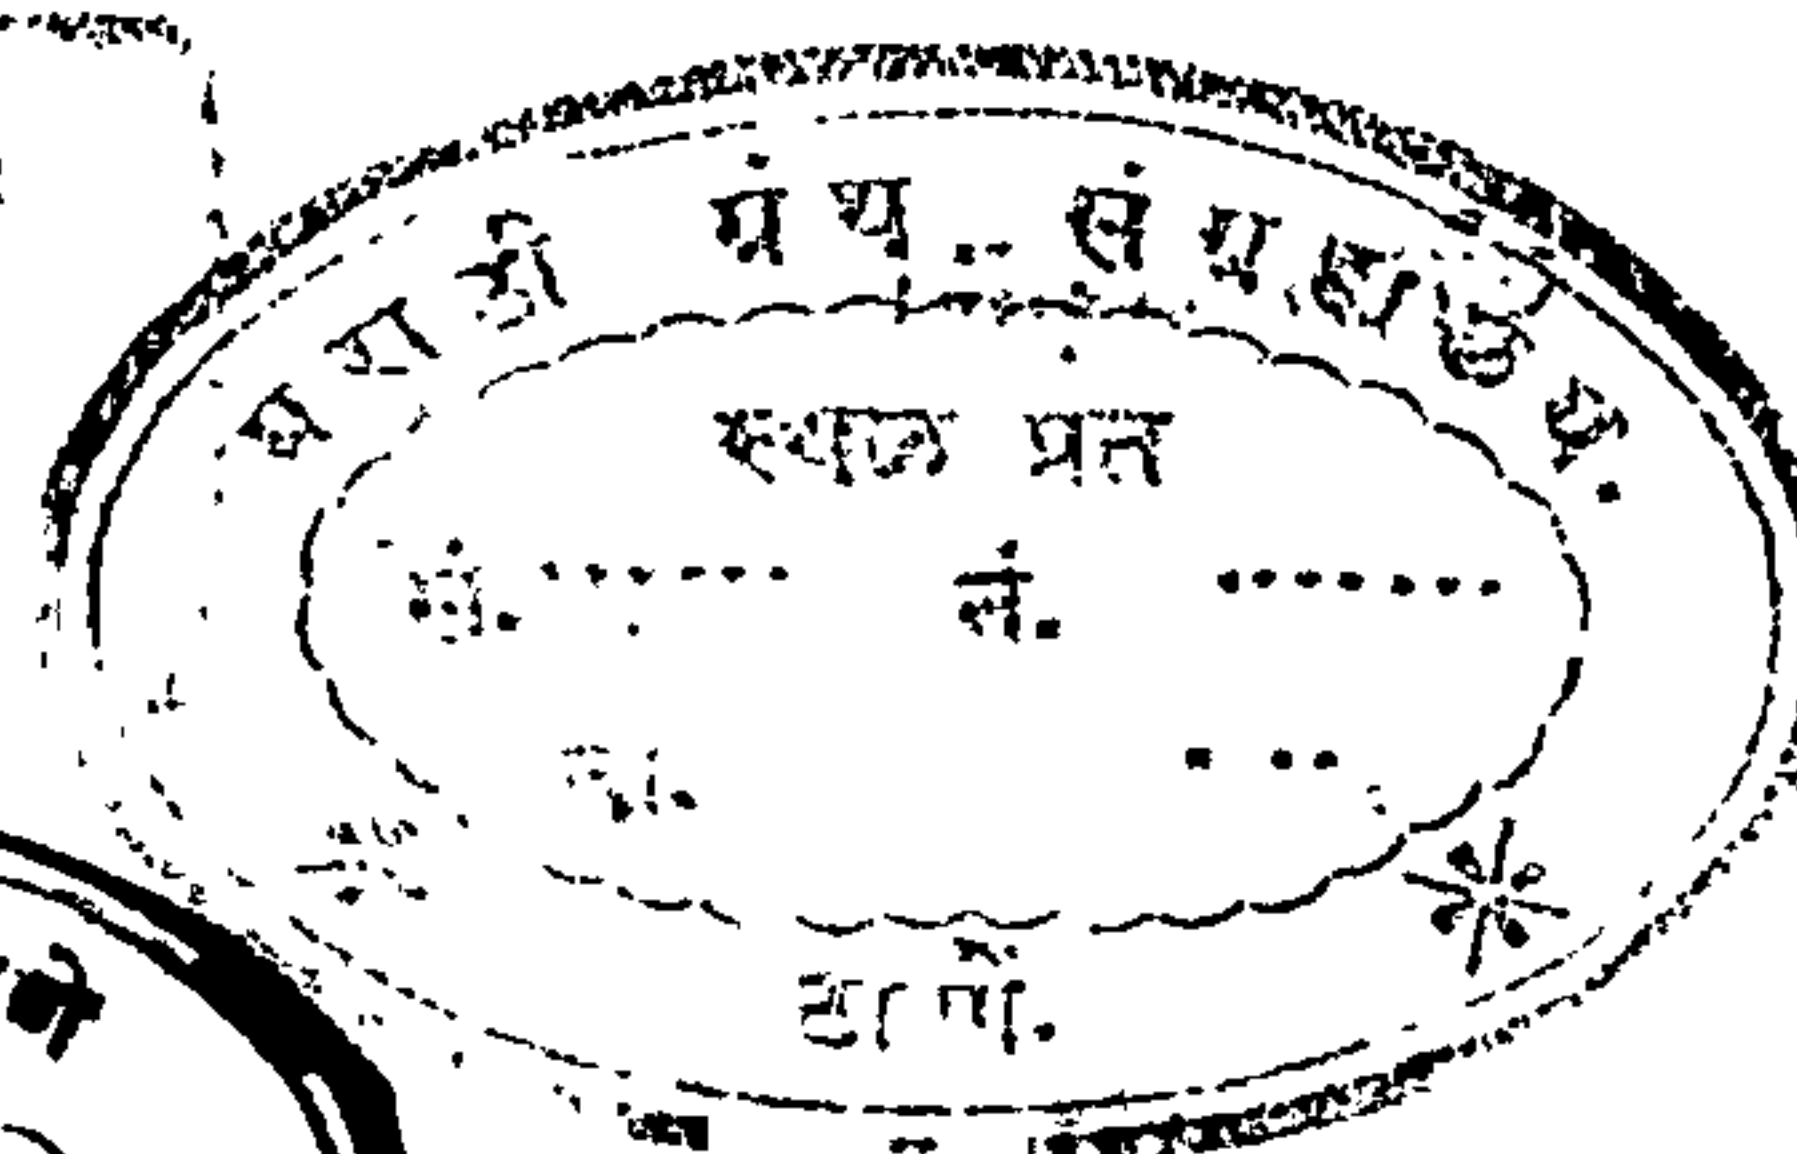 मराठी ग्रंथ संग्रहालय.
स्थळ प्रत
सं. ...... नं. .......
ठाणें.